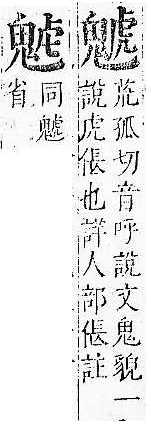 䰧
荒孤切音呼說文鬼貌一
說虎倀也詳人部倀註
同䰧
省